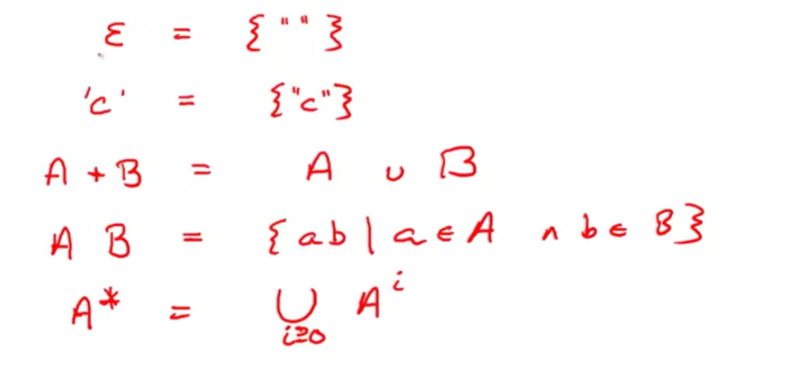 ε = {""}
'c' = {"c"}
A + B = A ∪ B
A B = {ab | a ∈ A ∧ b ∈ B}
A* = ⋃ i≥0 Aⁱ